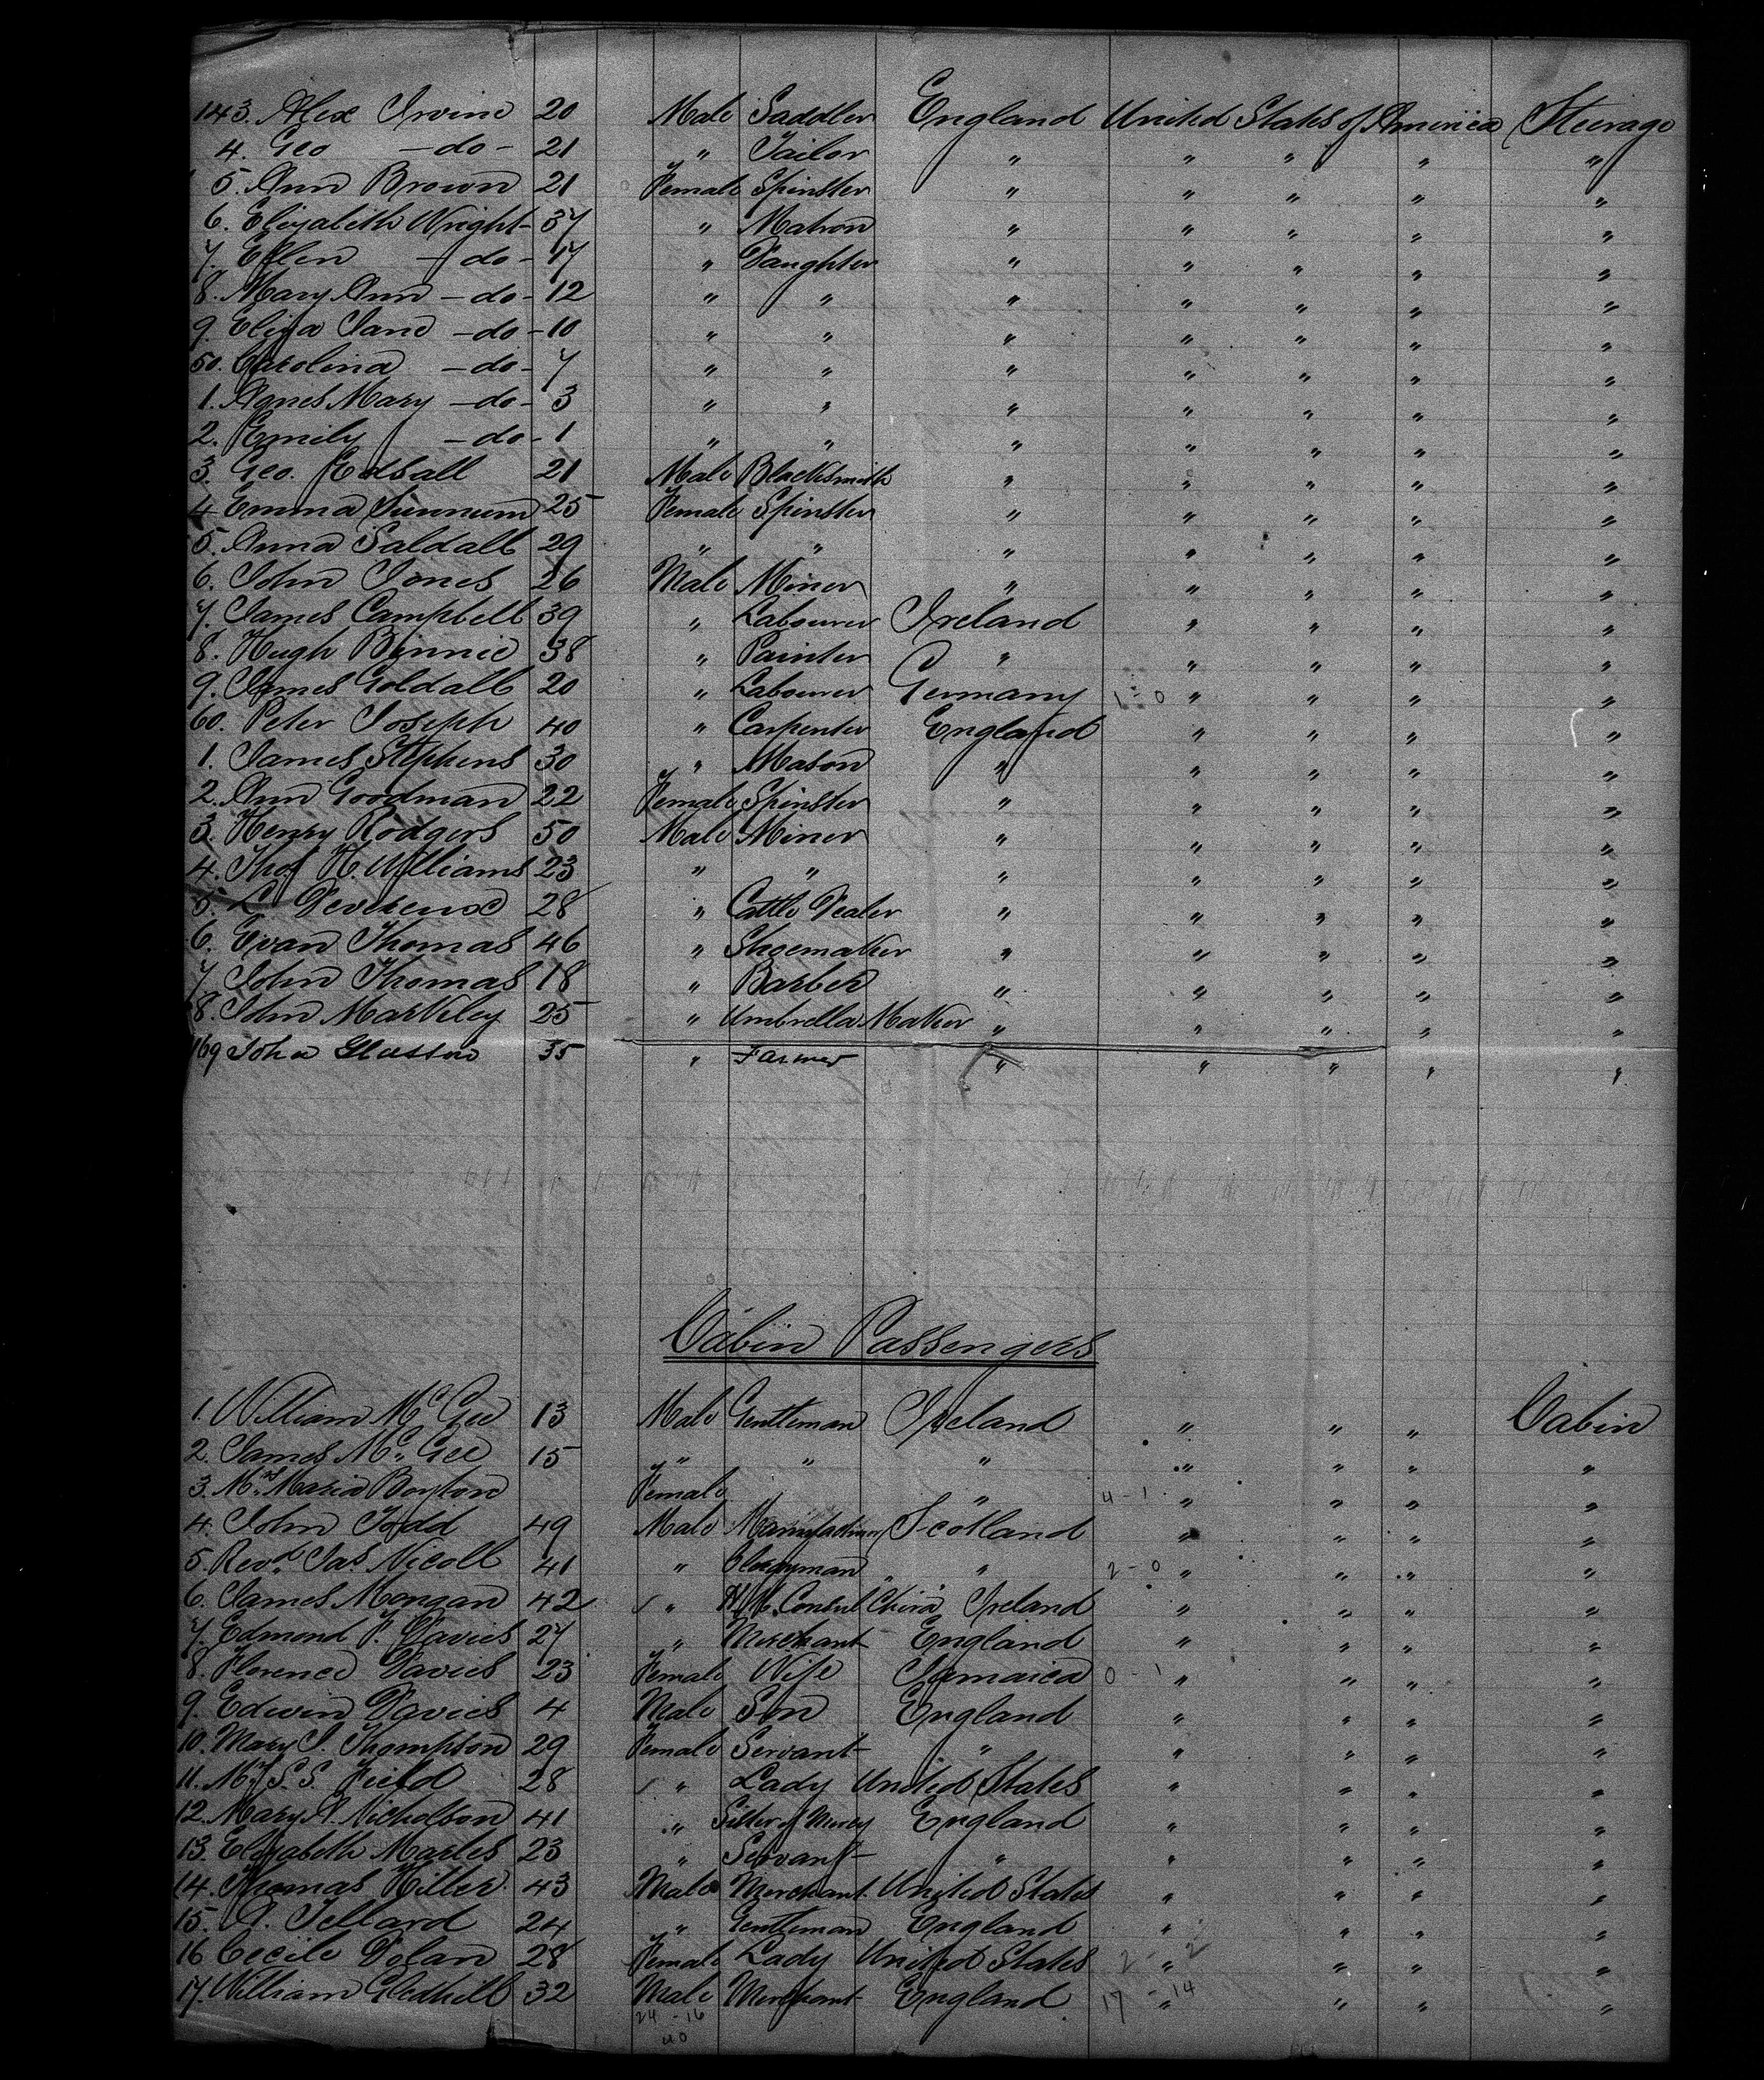 143. Alex Irvine 20 Male Saddler England United States of America Steerage
4. Geo - do - 21 " Tailor " " " " "
5. Ann Brown 21 Female Spinster " " " " "
6. Elizabeth Wright 37 " Matron " " " " "
7. Ellen - do - 17 " Daughter " " " " "
8. Mary Ann - do - 12 " " " " " " "
9. Eliza Jane - do - 10 " " " " " " "
50. Carolina - do - 7 " " " " " " "
1. Agnes Mary - do - 3 " " " " " " "
2. Emily - do - 1 " " " " " " "
3. Geo. Edsall 21 Male Blacksmith " " " " "
4 Emma 25 Female Spinster " " " " "
5. Anna Saldall 29 " " " " " " "
6. John Jones 26 Male Miner " " " " "
7. James Campbell 39 " Labourer Ireland " " " "
8. Hugh Binnie 38 " Painter " " " " "
9. James Goldall 20 " Labourer Germany 1 - 0 " " " "
60. Peter Joseph 40 " Carpenter England " " " "
1. James Stephens 30 " Mason " " " " "
2. Ann Goodman 22 Female Spinster " " " " "
3. Henry Rodgers 50 Male Miner " " " " "
4. Thos H. Williams 23 " " " " " " "
5. L Devereux 28 " Cattle Dealer " " " " "
6. Evan Thomas 46 " Shoemaker " " " " "
7 John Thomas 18 " Barber " " " " "
8. John Markley 25 " Umbrella Maker " " " " "
169 John Glasson 35 " Farmer " " " " "
Cabin Passengers
1. William McGee 13 Male Gentleman Ireland " " " Cabin
2. James Mc. Gee 15 " " " " " " "
3. Mrs Maria Boylon Female " 4 - 1 " " " "
4. John Todd 49 Male Manufacturer Scotland " " " "
5. Revd. Jas. Nicoll 41 " Clergyman " 2 - 0 " " " "
6. James Mongan 42 " H.M. Consul China Ireland " " " "
7. Edmond F. Davies 27 " Merchant England " " " "
8. Florence Davies 23 Female Wife Jamaica 0 - 1 " " " "
9. Edwin Davies 4 Male Son England " " " "
10. Mary J. Thompson 29 Female Servant " " " " "
11. S. S. Field 28 " Lady United States " " " "
12. Mary A. Nicholson 41 " Sister of Mercy England " " " "
13. Elizabeth Marles 23 " Servant " " " " "
14. Thomas Hiller 43 Male Merchant United States " " " "
15. A. Tellard 24 " Gentleman England " " " "
16 Cecile Dolan 28 Female Lady United States 2 - 2 " " " "
17. William Gledhill 32 Male Merchant England 17 - 14 " " " "
24 - 16
40